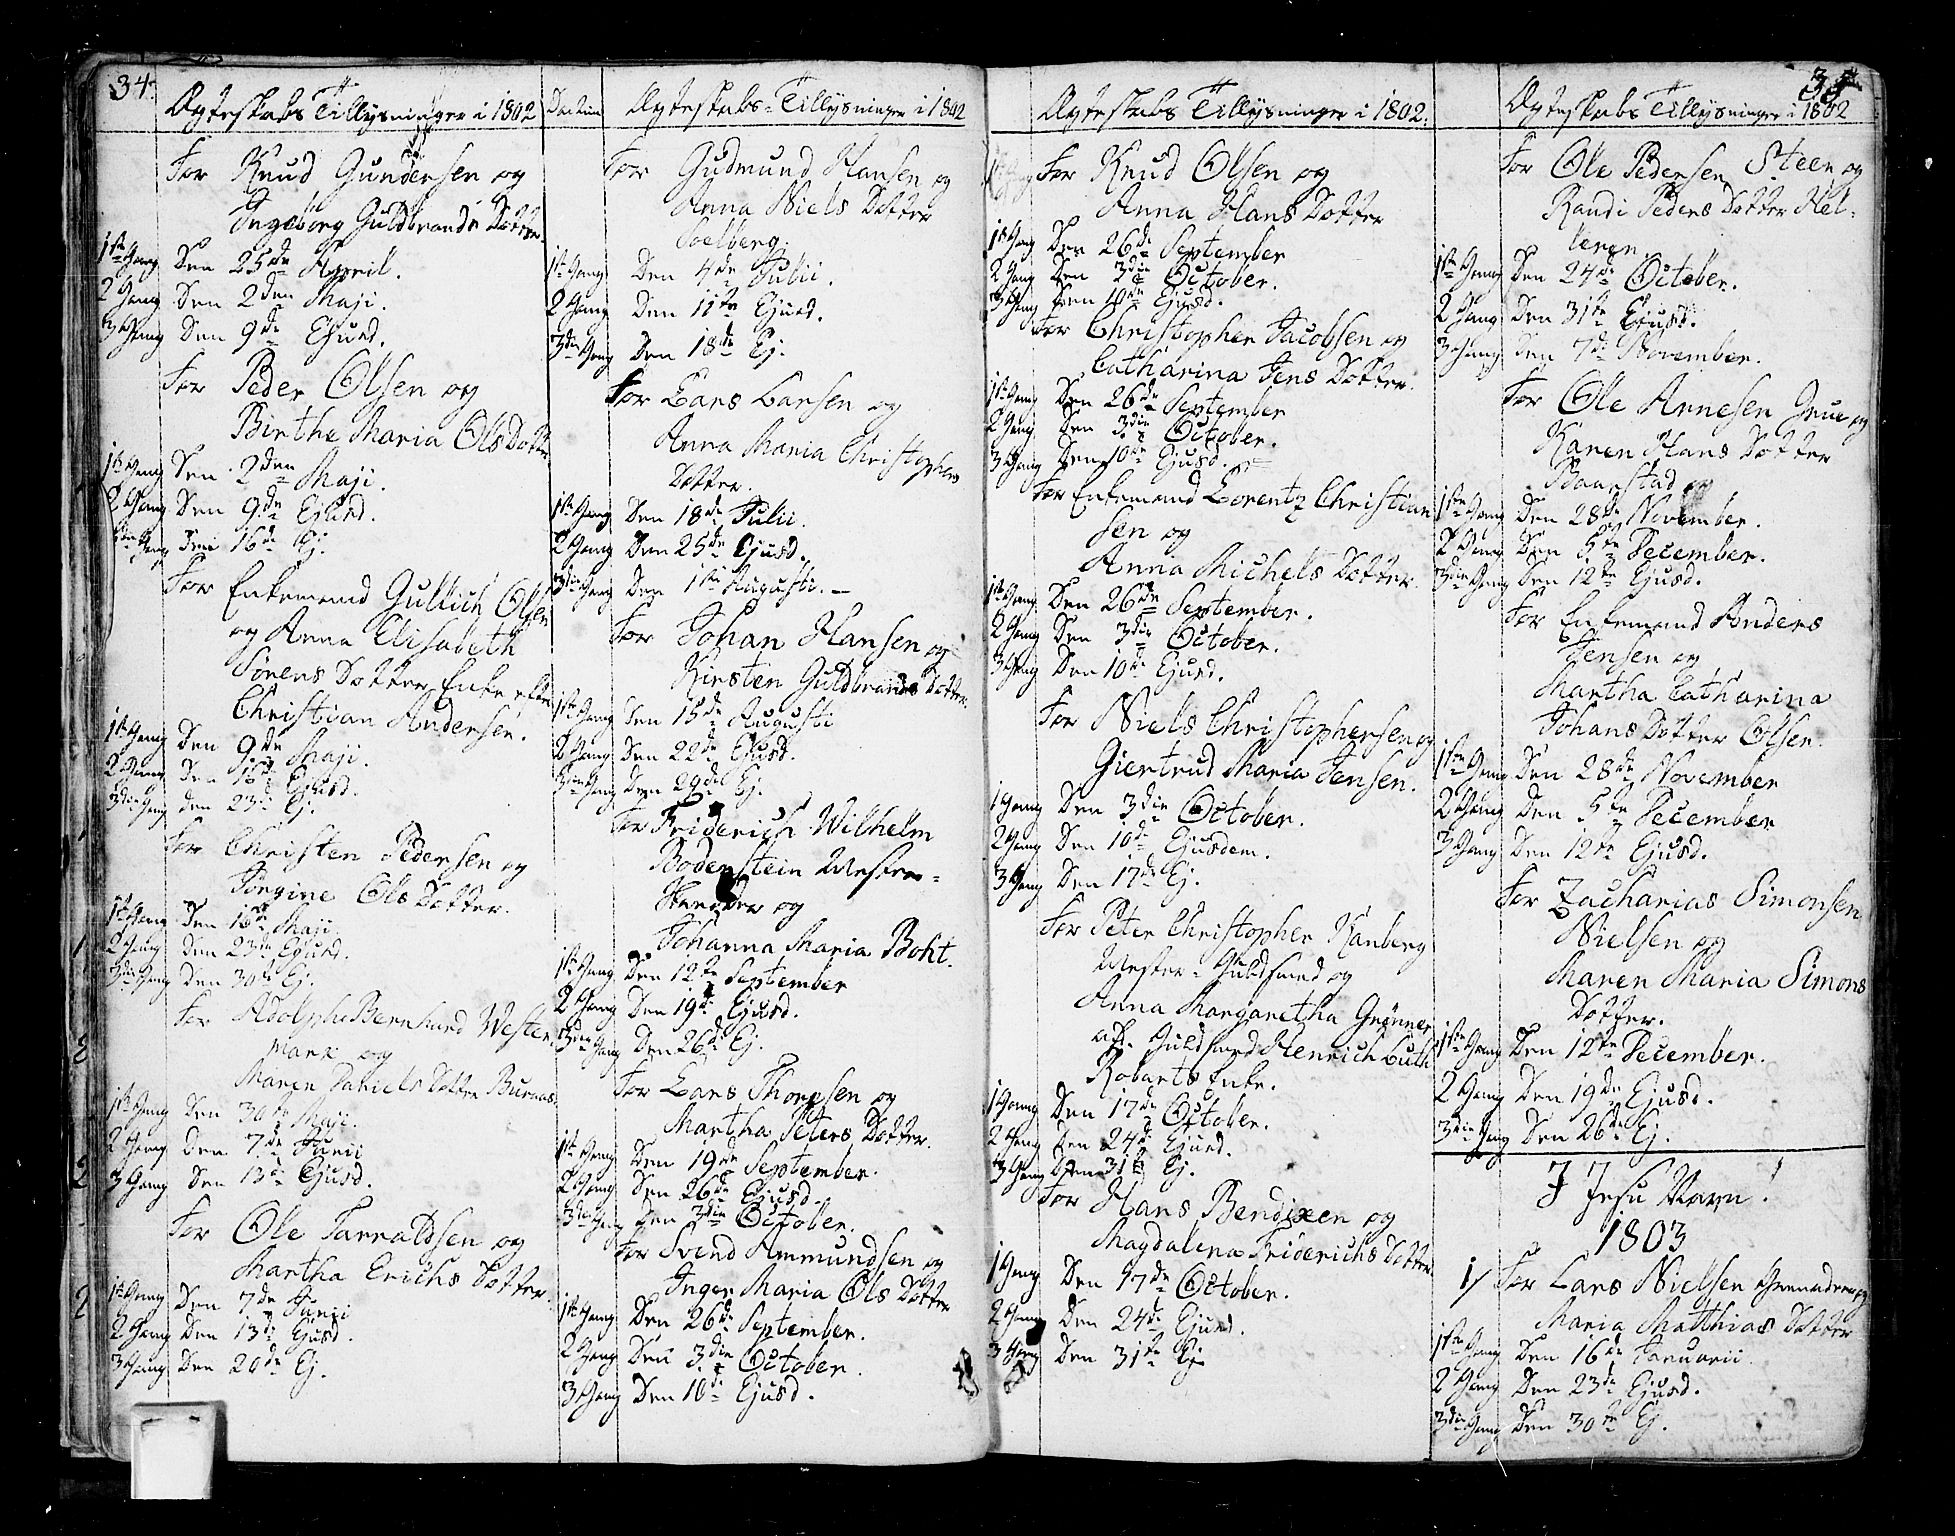 34.
Ægteskabs Tillysninger i 1802
For Knud Gundersen og
Ingeborg Guldbrands Dotter.
1ste Gang Den 25de April.
2 Gang Den 2den Maji.
3 Gang Den 9de Ejusd.
For Peder Olsen og
Birthe Maria Ols Dotter
1ste Gang Den 2den Maji.
2 Gang Den 9de Ejusd.
3die Gang Den 16de Ej.
For Enkemand Gullich Olsen
og Anna Elisabeth
Sørens Dotter, Enke efter
Christian Andersen.
1ste Gang Den 9de Maji.
2 Gang Den 16de Ejusd.
3die Gang den 23de Ej.
For Christen Pedersen og
Jørgine Ols Dotter.
1ste Gang Den 16de Maji.
2 Gang Den 23de Ejusd.
3die Gang Den 30te Ej.
For Adolph Bernhard Wester
mark og
Maren Daniels Dotter Buraas.
1ste Gang Den 30te Maji.
2 Gang Den 7de Junii
3 Gang Den 13de Ejusd.
For Ole Tarraldsen og
Martha Erichs Dotter.
1ste Gang Den 7de Junii
2 Gang Den 13de Ejusd.
3 Gang Den 20de Ej.
Datum
Ægteskabs-Tillysninger i 1802
For Gudmund Hansen og
Anna Niels Dotter
Soelberg.
1ste Gang Den 4de Julii.
2 Gang Den 11te Ejusd.
3die Gang Den 18de Ej.
For Lars Larsen og
Anna Maria Christophers
Dotter.
1ste Gang Den 18de Julii.
2 Gang Den 25de Ejusd.
3die Gang Den 1ste Augusti.
For Johan Hansen og
Kirsten Guldbrands Dotter.
1ste Gang Den 15de Augusti
2 Gang Den 22de Ejusd.
3die Gang Den 29de Ej.
For Friderich Wilhelm
Bodenstein Mester-
og
Johanna Maria Boht.
1ste Gang Den 12te September
2 Gang Den 19de Ejusd.
3die Gang Den 26de Ej.
For Lars Thorsen og
Martha Peters Dotter.
1ste Gang Den 19de September.
2 Gang Den 26de Ejusd.
3die Gang Den 3die October.
For Svend Ammundsen og
Inger Maria Ols Dotter
1ste Gang Den 26de September.
2 Gang Den 3die October.
3 Gang Den 10de Ejusd.
Ægteskabs Tillysninger i 1802.
For Knud Olsen og
Anna Hans Dotter
1ste Gang Den 26de September
2 Gang Den 3die October.
3 Gang Den 10de Ejusd.
For Christopher Jacobsen og
Catharina Jens Dotter.
1ste Gang Den 26de September
2 Gang Den 3die October.
3 Gang Den 10de Ejusd.
For Enkemand Lorentz Christian
sen og
Anna Michels Dotter.
1ste Gang Den 26de September.
2 Gang Den 3die October.
3 Gang Den 10de Ejusd.
For Niels Christophersen og
Giertrud Maria Jensen.
1 Gang Den 3die October.
2 Gang Den 10de Ejusdem.
3 Gang Den 17de Ej.
For Peter Christopher Kanberg
Mester-Guldsmed og
Anna Margaretha Grønner
afd. Guldsmed Henrich Luth
Robarts Enke.
1 Gang Den 17de October.
2 Gang Den 24de Ejusd.
3 Gang Den 31te Ej.
For Hans Bendixen og
Magdalena Friderichs Dotter
1 Gang Den 17de October.
2 Gang Den 24de Ejusd.
3 Gang Den 31te Ej.
35
Ægteskabs Tillysninger i 1802
For Ole Pedersen Steen og
Randi Peders Dotter Hel-
leren
1ste Gang Den 24de October.
2 Gang Den 31te Ejusd.
3 Gang Den 7de November.
For Ole Arnesen Grue og
Karen Hans Dotter
Baarstad
1ste Gang Den 28de November.
2 Gang Den 5te December.
3die Gang Den 12te Ejusd.
For Enkemand Anders
Jensen og
Martha Catharina
Johans Dotter Olsen.
1ste Gang Den 28de November
2 Gang Den 5te December
3 Gang Den 12te Ejusd.
For Zacharias Simonsen
Nielsen og
Maren Maria Simons
Dotter.
1ste Gang Den 12te December.
2 Gang Den 19de Ejusd.
3die Gang Den 26de Ej.
I Jesu Navn!
1803
1/ For Lars Nielsen Grenadeer og
Maria Matthias Dotter
1ste Gang Den 16de Januarii
2 Gang Den 23de Ejusd.
3die Gang Den 30te Ej.